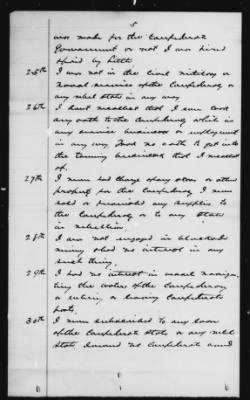 5
was made for the Confederate
Government or not I was hired
& paid by Little
25th I was not in the Civil military or
naval service of the Confederacy or
any rebel State in any way
26th I dont recollect that I ever took
any oath to the Confederacy while in
any service business or employment
in any way Took no oath to get into
the tanning business that I recollect
of.
27th I never had charge of any stores or other
property for the Confederacy I never
sold or furnished any supplies to
the Confederacy or to any State
in rebellion.
28th I was not engaged in blockade
running had no interest in any
such thing.
29th I had no interest in vessel navigating
the waters of the Confederacy
or entering or leaving Confederate
ports.
30th I never subscribed to any loan
of the Confederate State or any rebel
State I owned no Confederate